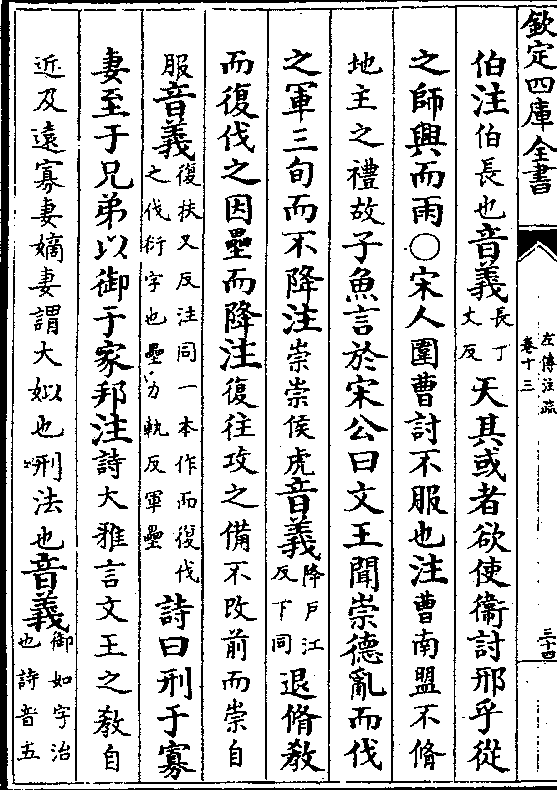 欽定四庫全書
左傳注疏
卷十三
三十四
伯注伯長也音義長丁丈反天其或者欲使衛討邢乎從
之師興而雨○宋人圍曹討不服也注曹南盟不脩
地主之禮故子魚言於宋公曰文王聞崇德亂而伐
之軍三旬而不降注崇崇侯虎音義降戶江反下同退脩教
而復伐之因壘而降注復往攻之備不改前而崇自
服音義復扶又反注同一本作而復伐之伐衍字也壘力軌反軍壘詩曰刑于寡
妻至于兄弟以御于家邦注詩大雅言文王之教自
近及遠寡妻嫡妻謂大姒也刑法也音義御如字治也詩音五